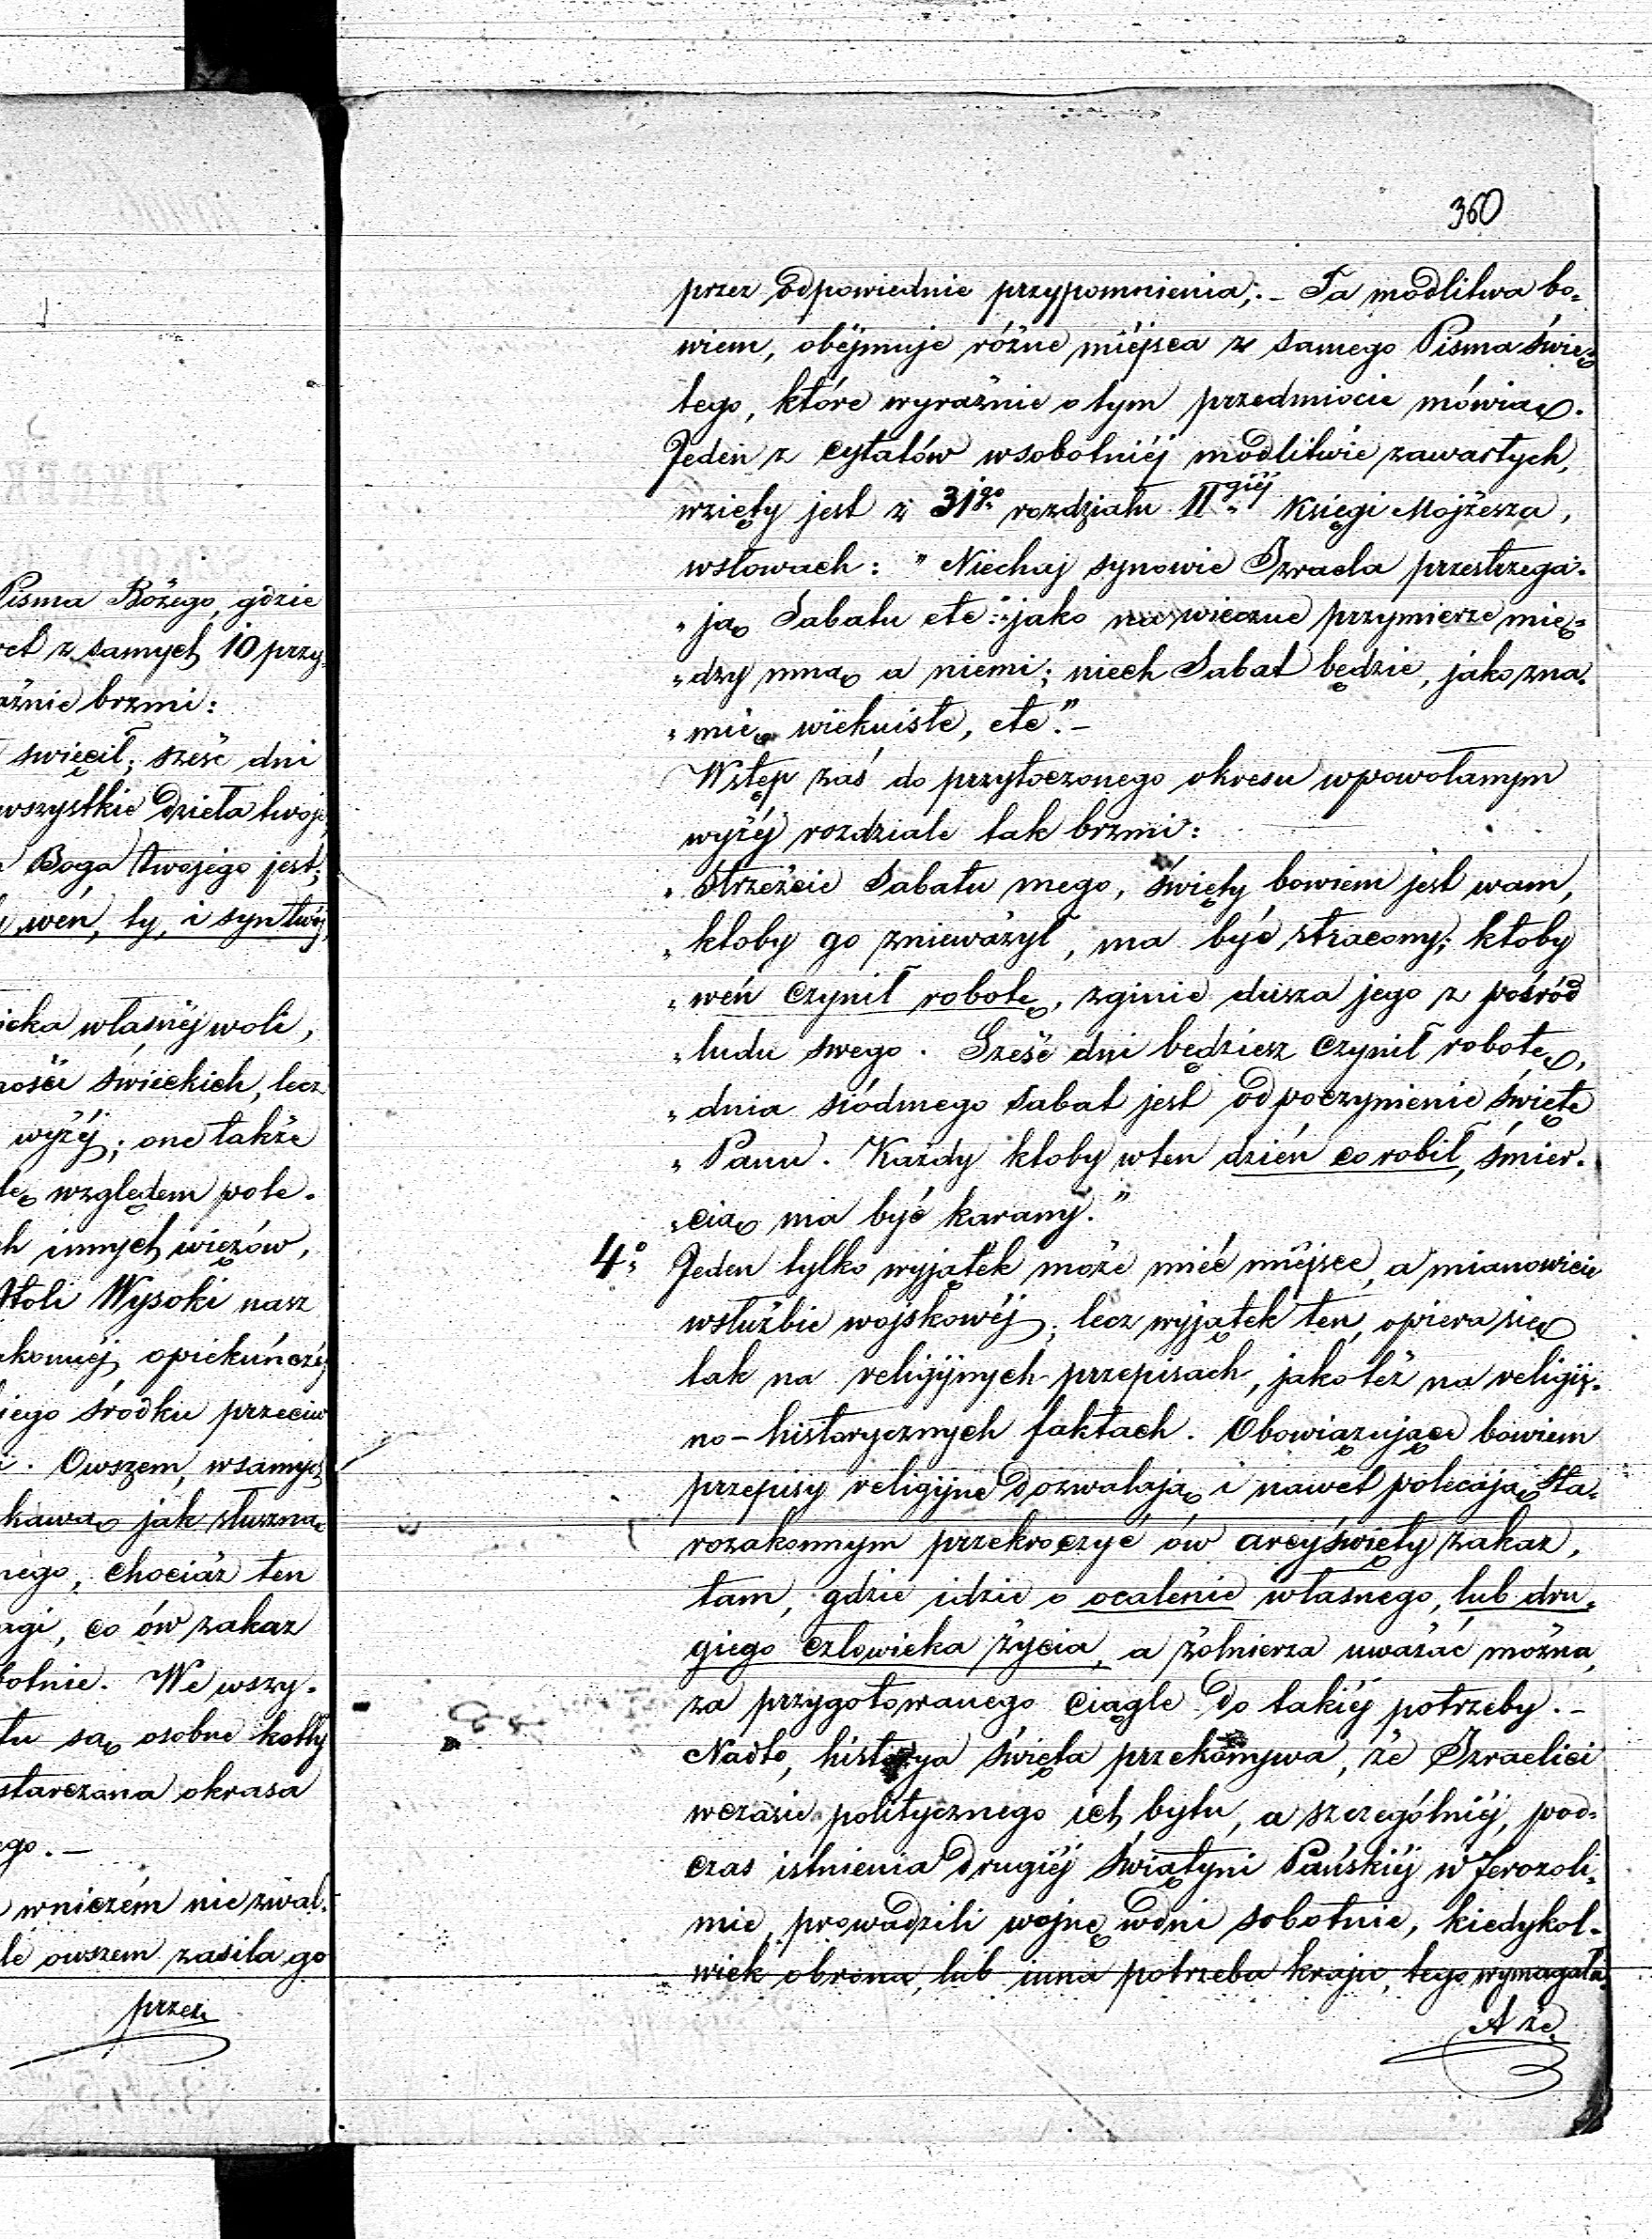 Pisma Bożego, gdzie
z samych 10 przy-
brzmi:
święcił; sześć dni
wszystkie dzieła twoje,
Boga twojego jest;
weń, ty, i syn twój,
własnéj woli,
świeckich, lecz
wyżéj; one także
względem pole-
innych więzów,
Wysoki nasz
opiekuńczéj
środku przeciw
Owszem, wsamych
jak słuszna
chociaż ten
co ów zakaz
We wszy-
są osobne kotły
okrasa
wniczém nie zwal-
owszem zasila go
przez
360
przez odpowiednie przypomnienia;.– Ta modlitwa bo-
wiem, obéjmuje różne miéjsca z samego Pisma Świę-
tego, które wyraźnie o tym przedmiocie mówią.
Jeden z cytatów wsobotniéj modlitwie zawartych,
wzięty jest z 31go rozdziału IIgiéj Księgi Mojżesza,
wsłowach: „Niechaj synowie Izraela przestrzega-
„ją Sabatu etc: „jako wieczne przymierze mię-
„dzy mną a niemi; niech Sabat będzie, jako zna-
„mię wiekuiste, etc.”–
Wstęp zaś do przytoczonego okresu wpowołanym
wyżéj rozdziale tak brzmi:
„Strzeżcie Sabatu mego, święty bowiem jest wam,
„ktoby go znieważył, ma być stracony; ktoby
„weń czynił robotę, zginie dusza jego z pośród
„ludu swego. Sześć dni będziesz czynił robotę,
„dnia siódmego sabat jest odpoczynienie święte
„Panu. Każdy ktoby wten dzień co robił, śmier-
„cią ma być karany.”
4o Jeden tylko wyjątek może mieć miéjsce, a mianowicie
wsłużbie wojskowéj; lecz wyjątek ten, opiera się
tak na religijnych przepisach, jako też na religij-
no-historycznych faktach. Obowiązujące bowiem
przepisy religijne dozwalają, i nawet polecają Sta-
rozakonnym przekroczyć ów arcyświęty zakaz,
tam, gdzie idzie o ocalenie własnego, lub dru-
giego człowieka życia, a żołnierza uważać można,
za przygotowanego ciągle do takiéj potrzeby.–
Nadto, historya święta przekonywa, że Izraelici
wczasie politycznego ich bytu, a szczególniéj, pod-
czas istnienia drugiéj świątyni Pańskiéj w Jerozoli-
mie, prowadzili wojnę wdni sobotnie, kiedykol-
wiek obrona, lub inna potrzeba kraju, tego wymagała.
A że